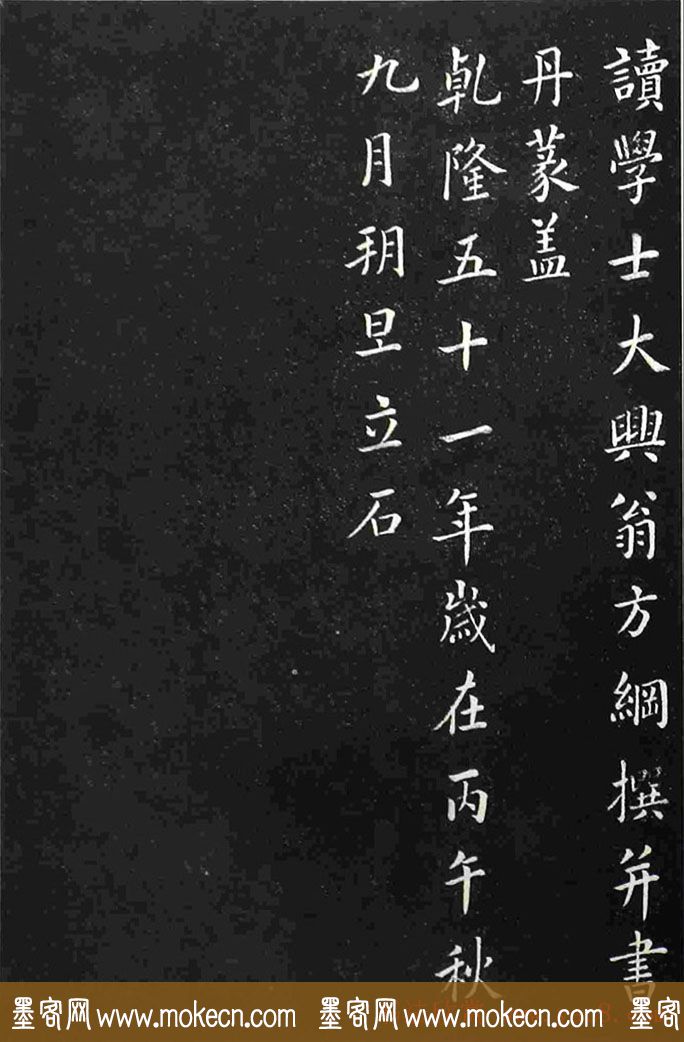 讀學士大興翁方綱撰并書
丹篆盖
乹隆五十一年歲在丙午秋
九月玥旦立石
墨客网 www.mokecn.com 墨客网 www.mokecn.com